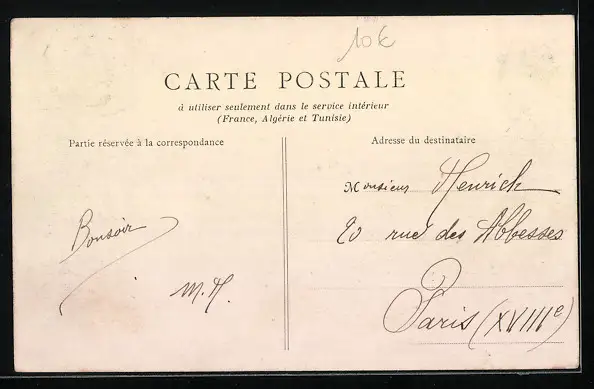 10€
CARTE POSTALE
à utiliser seulement dans le service intérieur
(France, Algérie et Tunisie)
Partie réservée à la correspondance
Bonsoir
M.H.
Adresse du destinataire
Monsieur Henrich
20 rue des Abbesses
Paris (XVIIIe)